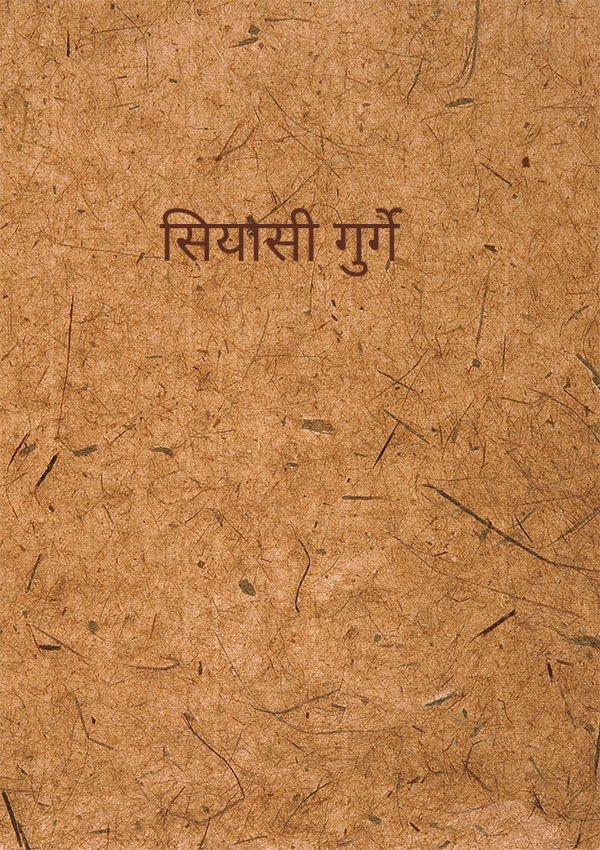 सियासी गुर्गे